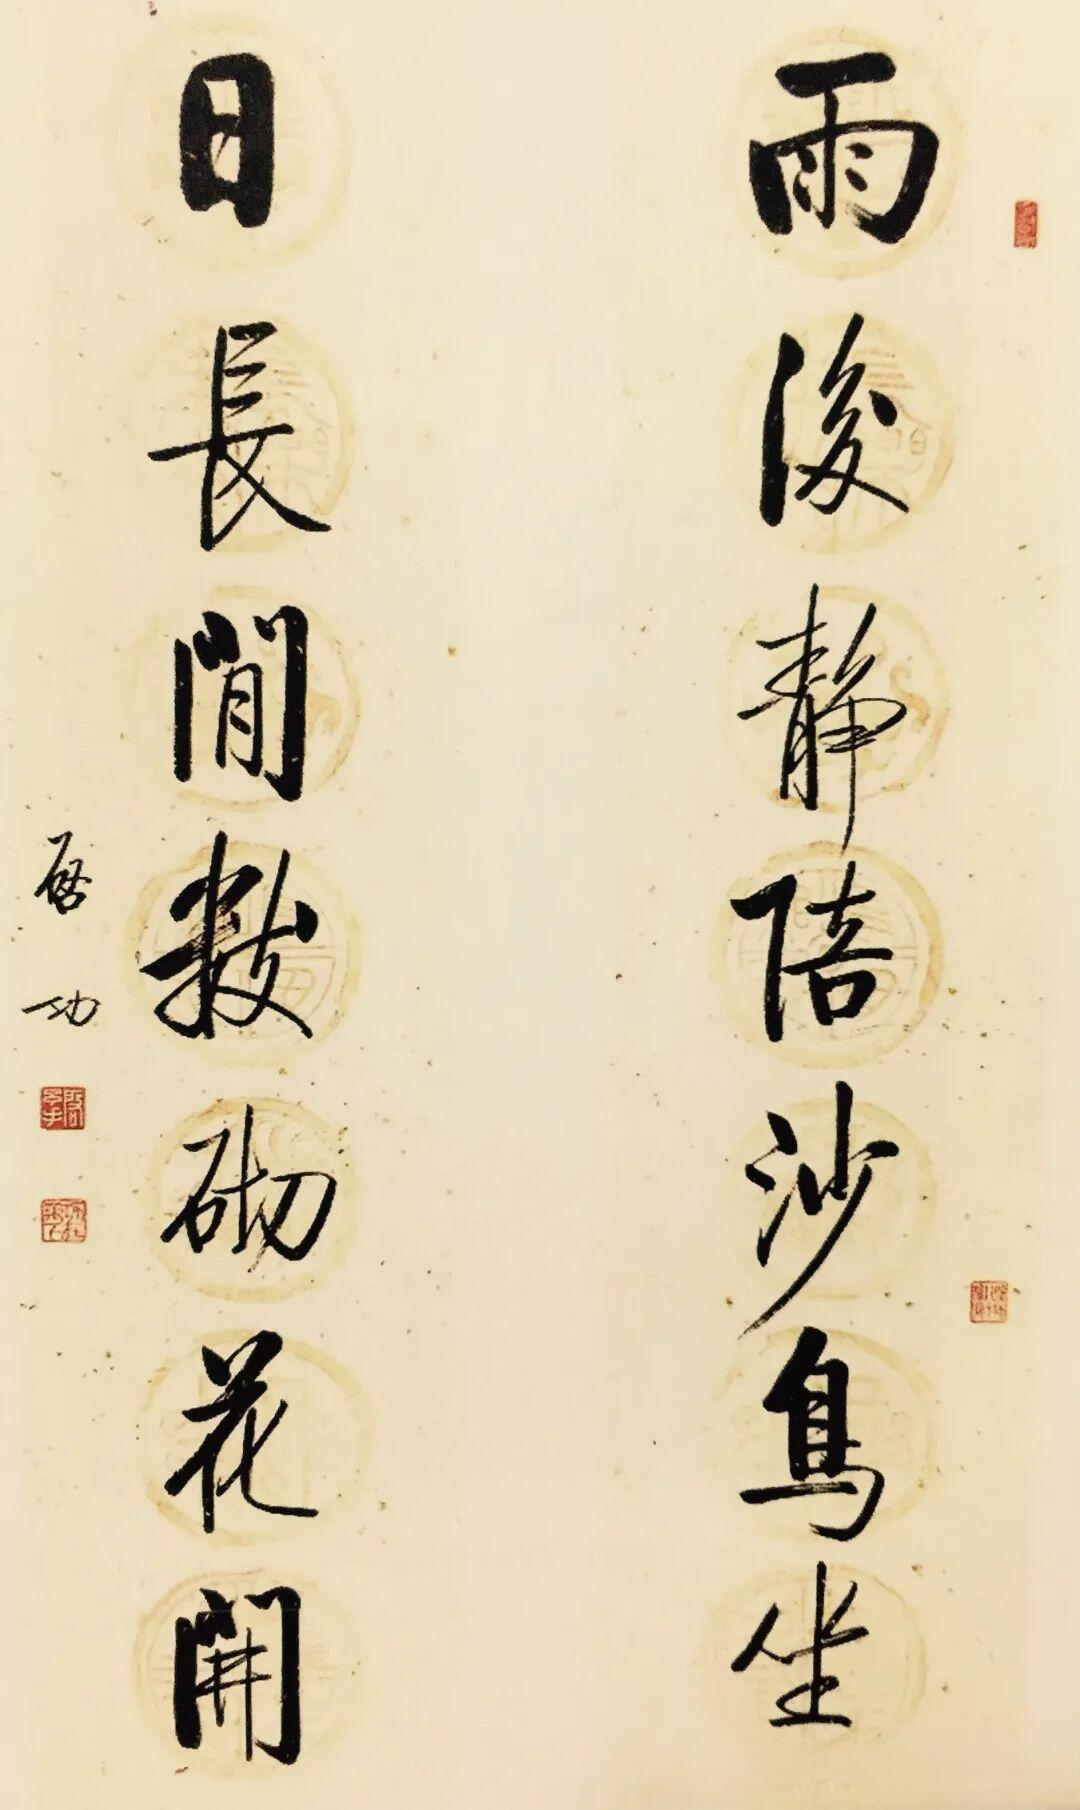 雨後静陪沙鳥坐
日長閒數砌花開
啓功